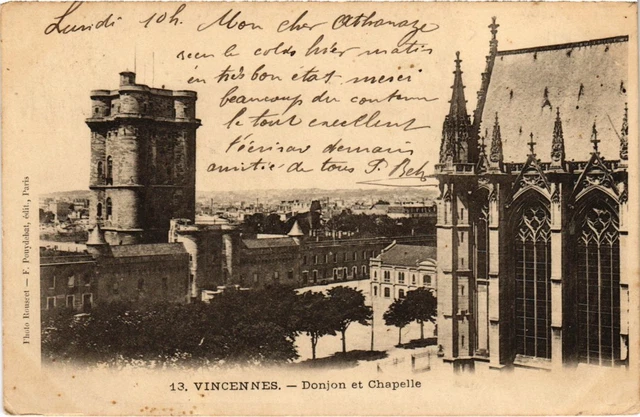 Lundi 10h. Mon cher Athanaze
reçu le colis hier matin
en très bon état merci
beaucoup du contenu
le tout excellent
t'écrirai demain
amitié de tous
Photo Rousset — F. Pouydebat, édit, Paris
13. VINCENNES. — Donjon et Chapelle